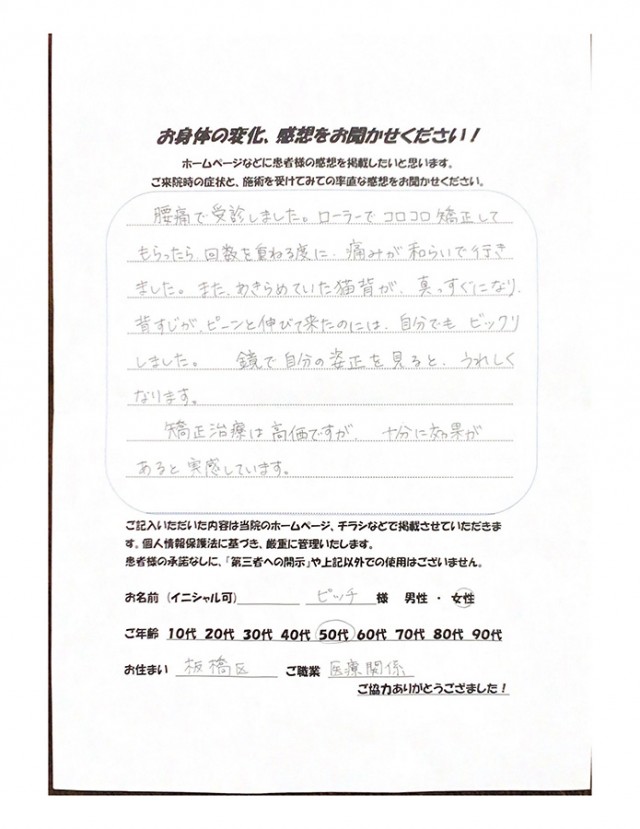 お身体の変化、感想をお聞かせください！
ホームページなどに患者様の感想を掲載したいと思います。
ご来院時の症状と、施術を受けてみての率直な感想をお聞かせください。
腰痛で受診しました。ローラーでコロコロ矯正して
もらったら、回数を重ねる度に、痛みが和らいで行き
ました。また、あきらめていた猫背が、真っすぐになり、
背すじが、ピーンと伸びて来たのには、自分でも ビックリ
しました。 鏡で自分の姿正を見ると、うれしく
なります。
矯正治療は高価ですが、 十分に効果が
あると実感しています。
ご記入いただいた内容は当院のホームページ、チラシなどで掲載させていただきま
す。個人情報保護法に基づき、厳重に管理いたします。
患者様の承諾なしに、「第三者への開示」や上記以外での使用はございません。
お名前（イニシャル可） ピッチ 様 男性 ・ 女性
ご年齢 10代 20代 30代 40代 50代 60代 70代 80代 90代
お住まい 板橋区 ご職業 医療関係
ご協力ありがとうござました！